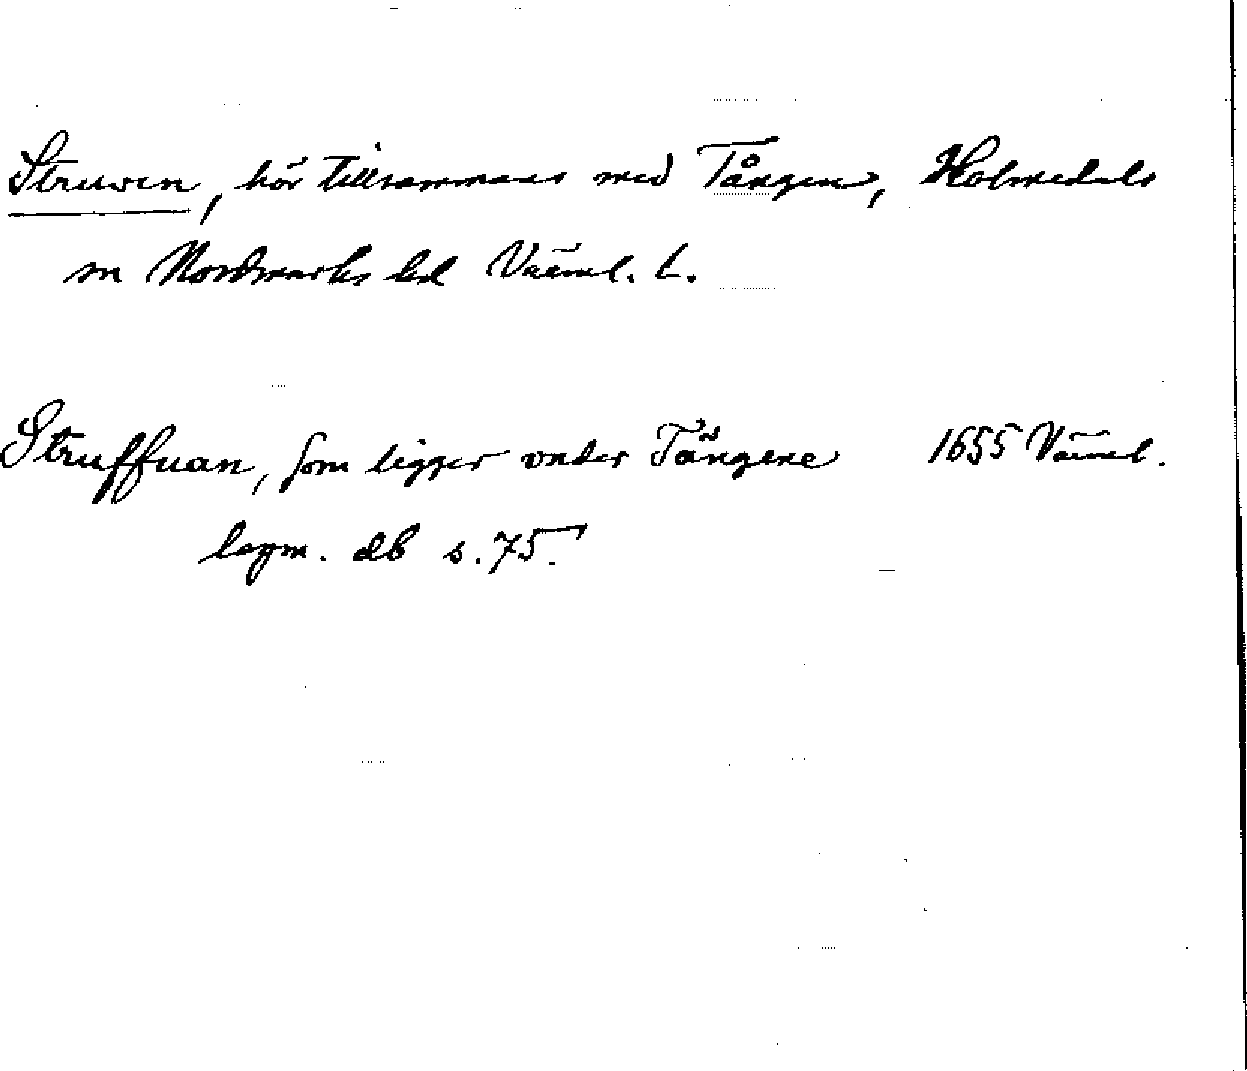 Struven, hör tillsammans med Tången, Holmedals
sn Nordmarks hd Värml. L.
Struffuan, som ligger vnder Tångene 1655 Värml.
lagm. db s. 75.